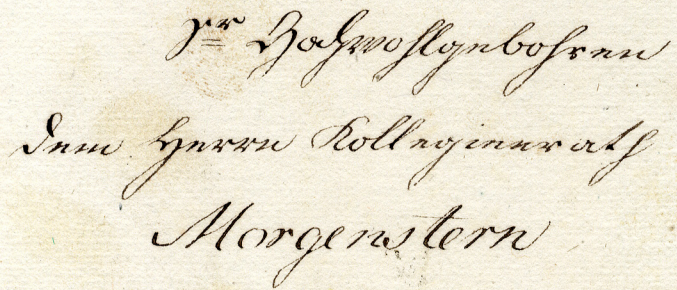 Sr Hochwohlgebohren
dem Herrn Kollegienrath
Morgenstern